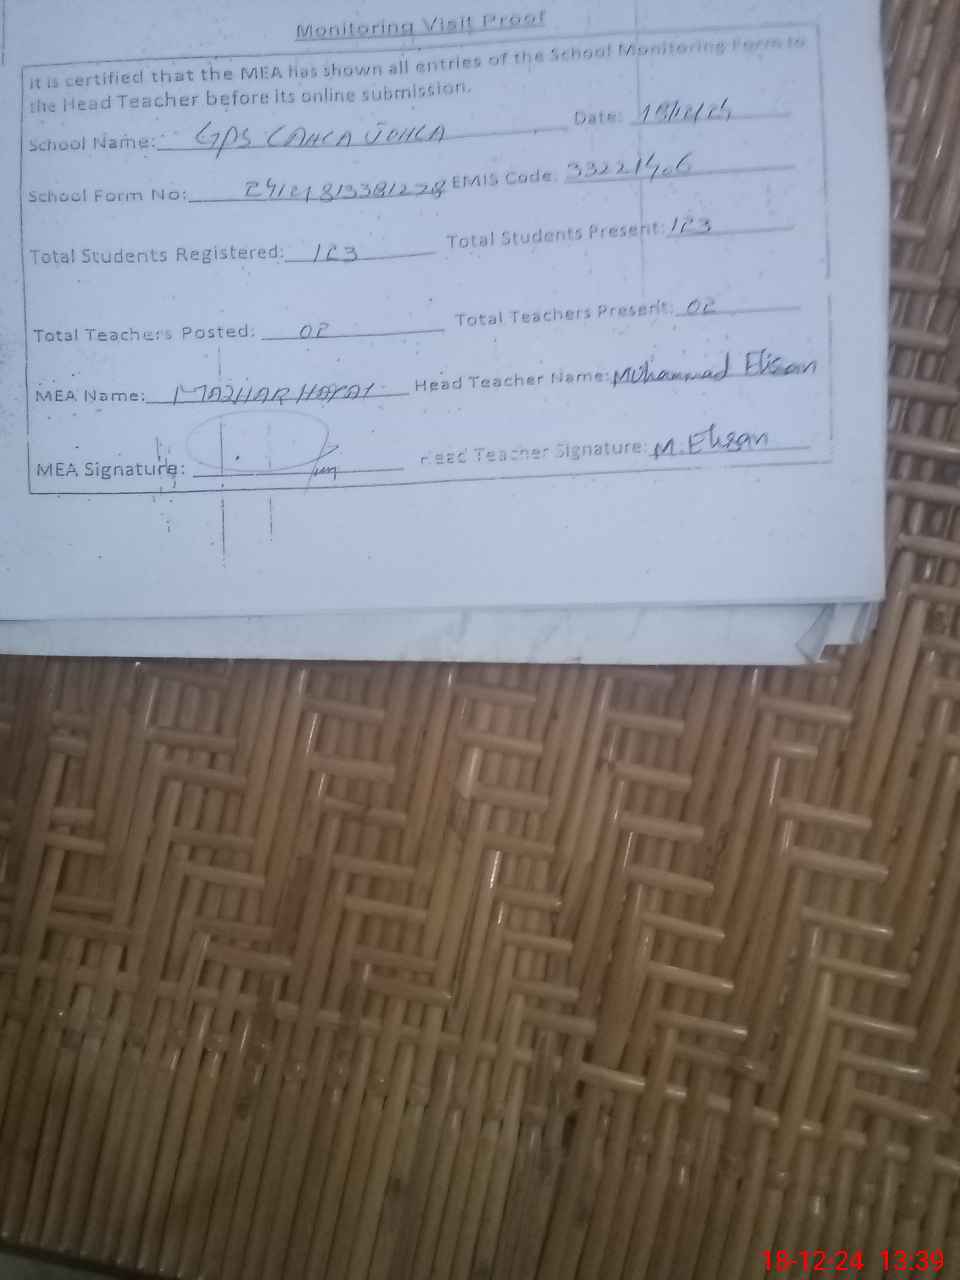 Monitoring Visit Proof
It is certified that the MEA has shown all entries of the School Monitoring Form to
the Head Teacher before its online submission.
School Name: GPS CAHCA JOHCA Date: 18/12/24
School Form No: 24121813381228 EMIS Code: 33221406
Total Students Registered: 123 Total Students Present: 123
Total Teachers Posted: 02 Total Teachers Present: 02
MEA Name: MAZHAR HAYAT Head Teacher Name: Mohammad Ehsan
MEA Signature: Head Teacher Signature: M. Ehsan
18-12-24 13:39